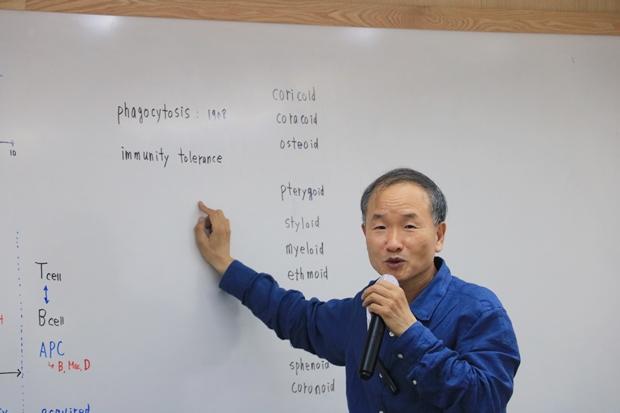 10
phagocytosis : 1908
immunity tolerance
T cell
B cell
APC
↳ B, Mac, D
acquired
coricold
coracoid
osteoid
pterygoid
styloid
myeloid
ethmoid
sphenoid
coronoid